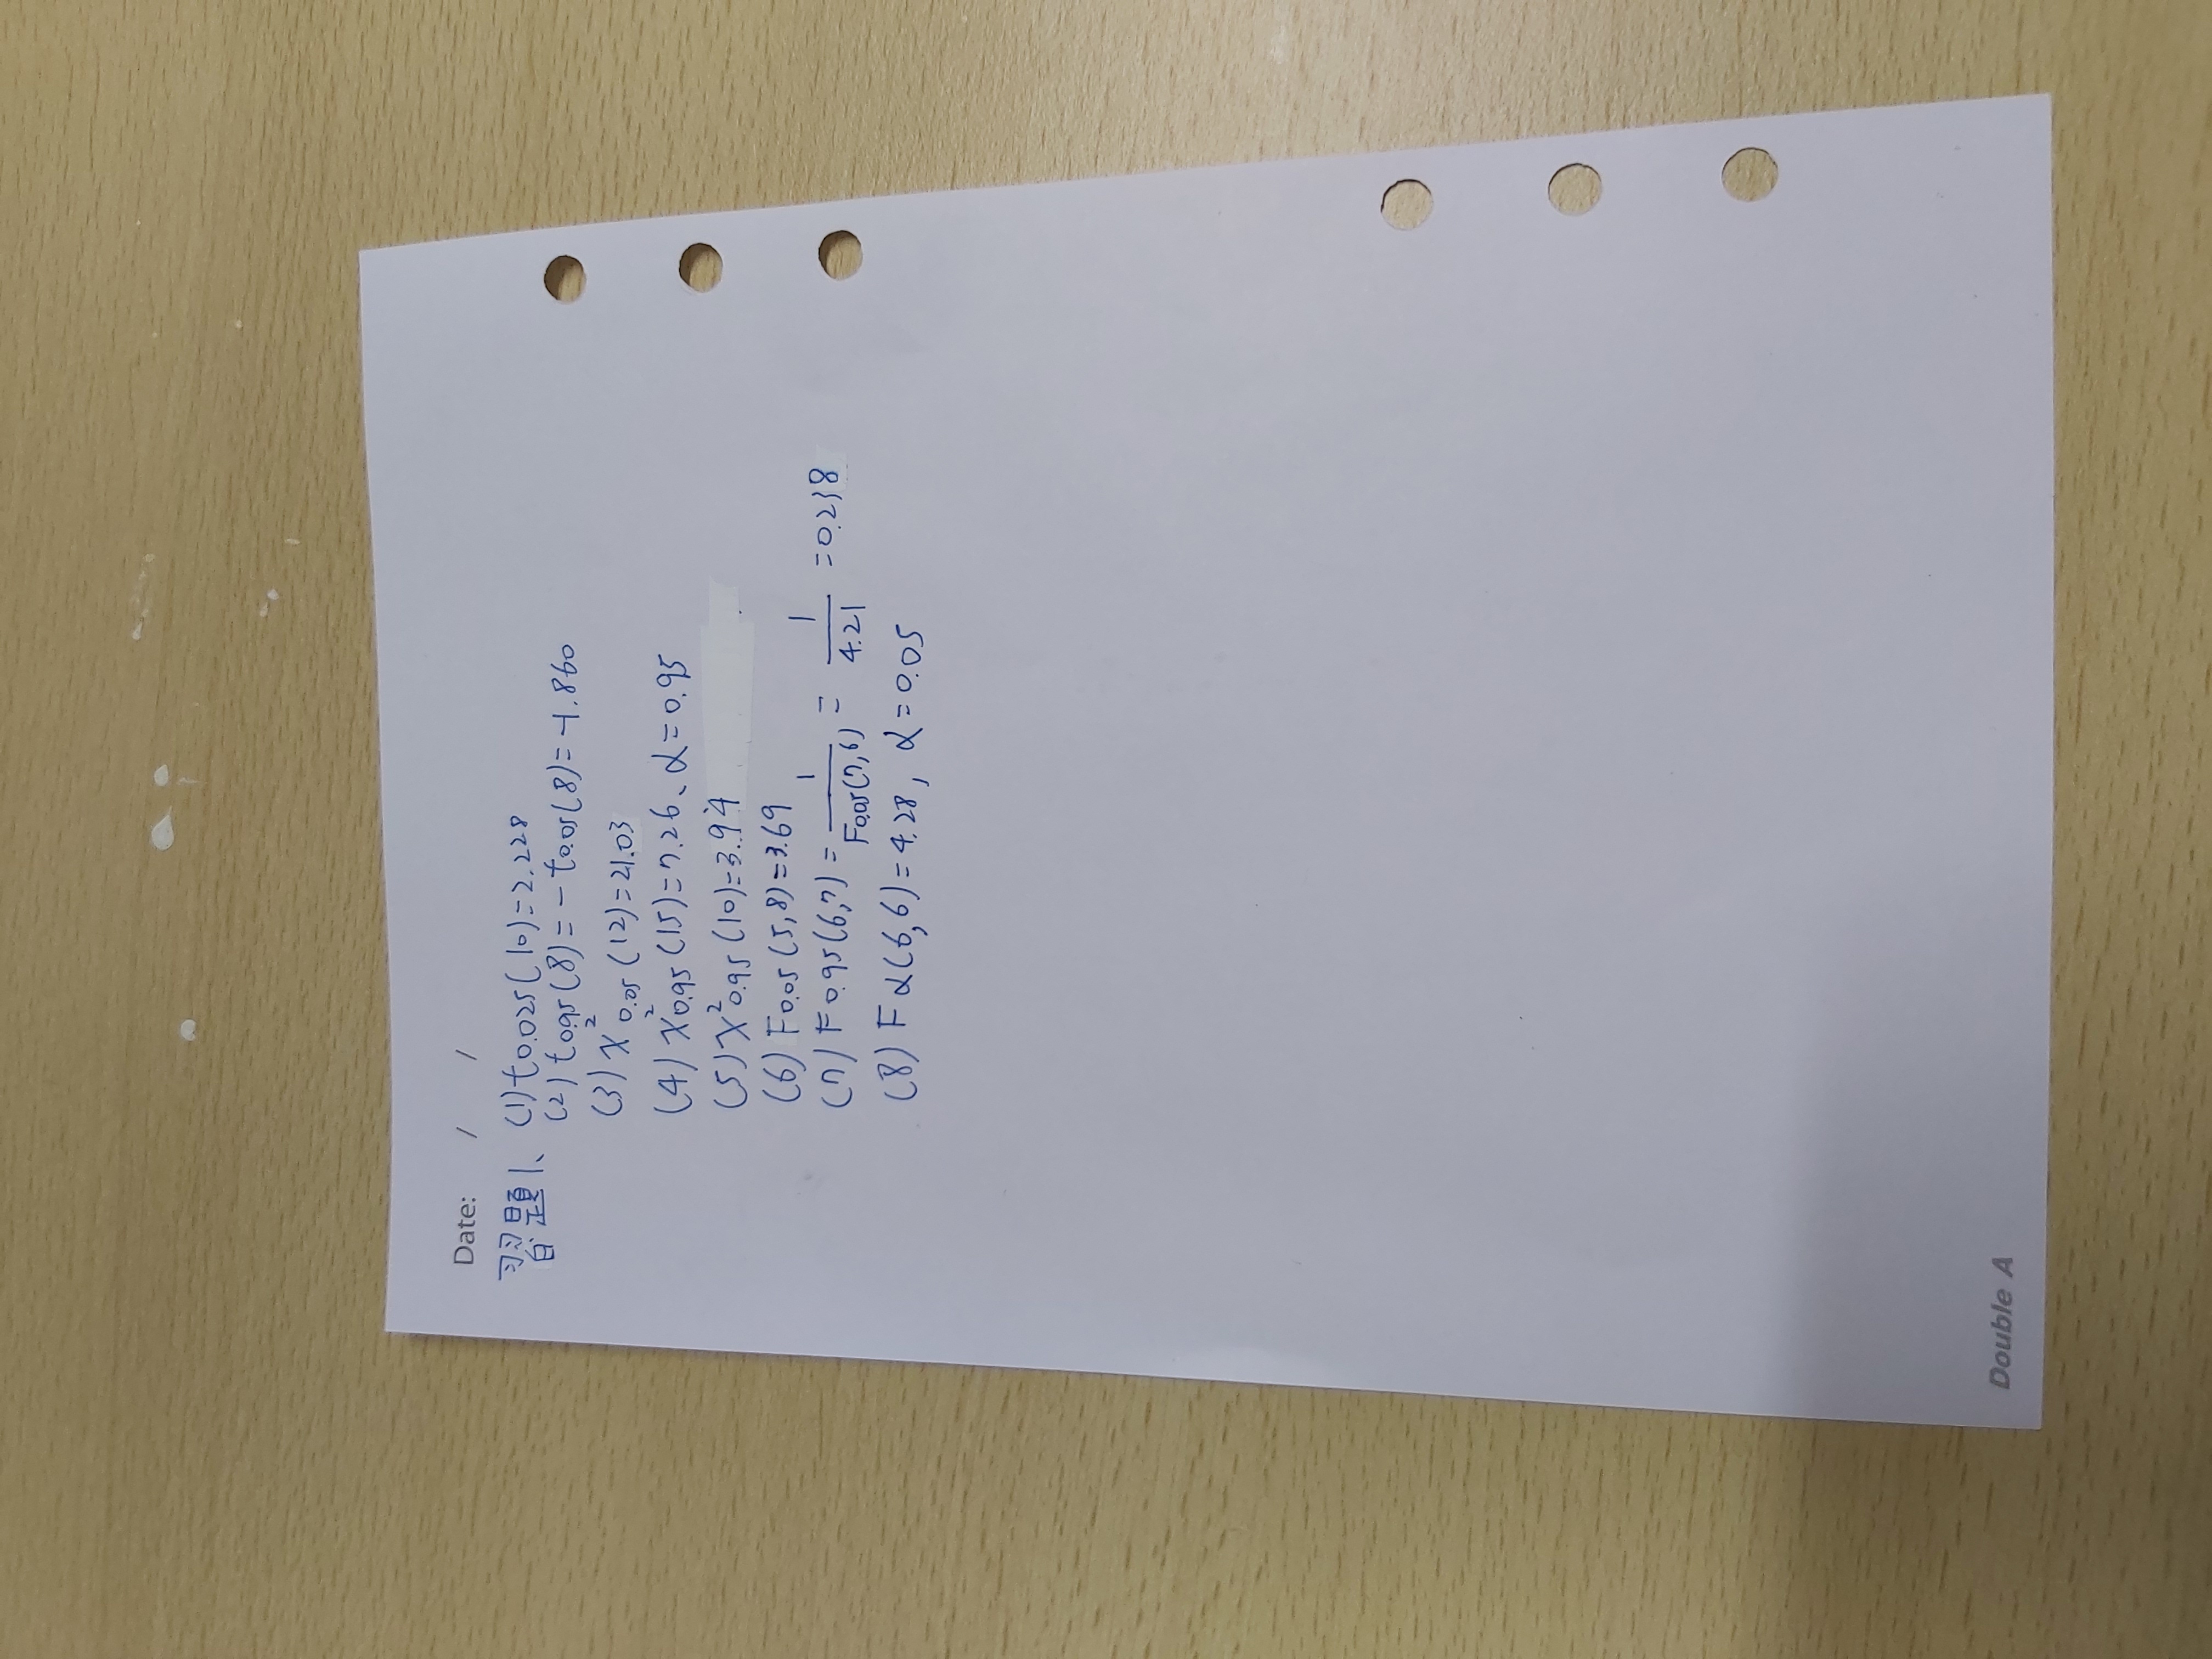 Date: / /
習題1、(1) t0.025(10)=2.228
(2) t0.95(8)=-t0.05(8)=-1.860
(3) χ²0.05(12)=21.03
(4) χ²0.95(15)=7.26、α=0.95
(5) χ²0.95(10)=3.94
(6) F0.05(5,8)=3.69
(7) F0.95(6,7)=1/F0.05(7,6)=1/4.21=0.238
(8) Fα(6,6)=4.28, α=0.05
Double A